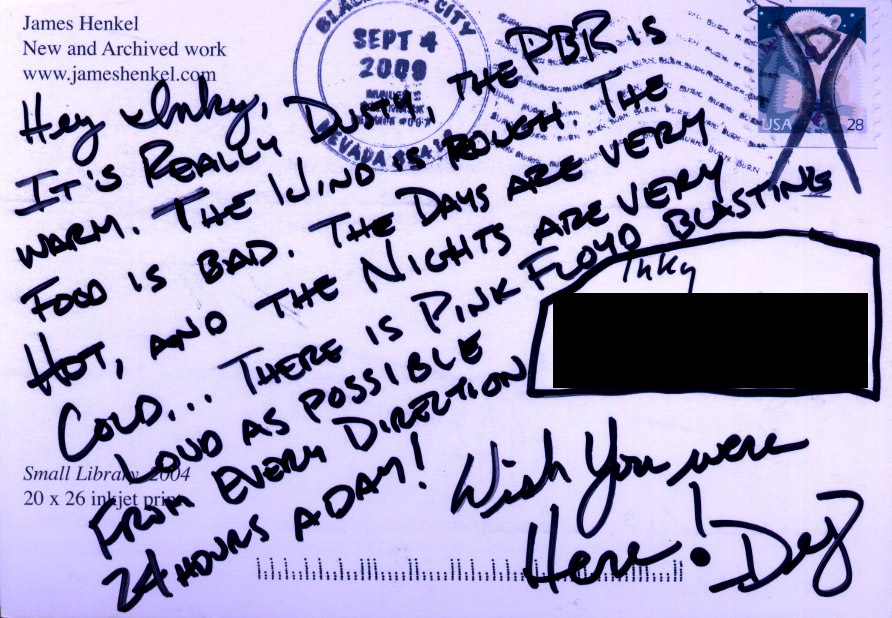 James Henkel
New and Archived work
www.jameshenkel.com
BLACK CITY
SEPT 4
2009
NEVADA
USA 28
Hey Inky,
IT'S REALLY DUSTY, THE PBR IS
WARM. THE WIND IS ROUGH. THE
FOOD IS BAD. THE DAYS ARE VERY
HOT, AND THE NIGHTS ARE VERY
COLD... THERE IS PINK FLOYD BLASTING
LOUD AS POSSIBLE
FROM EVERY DIRECTION
24 HOURS A DAY!
Inky
Wish You were
Here! Dez
Small Library, 2004
20 x 26 inkjet print